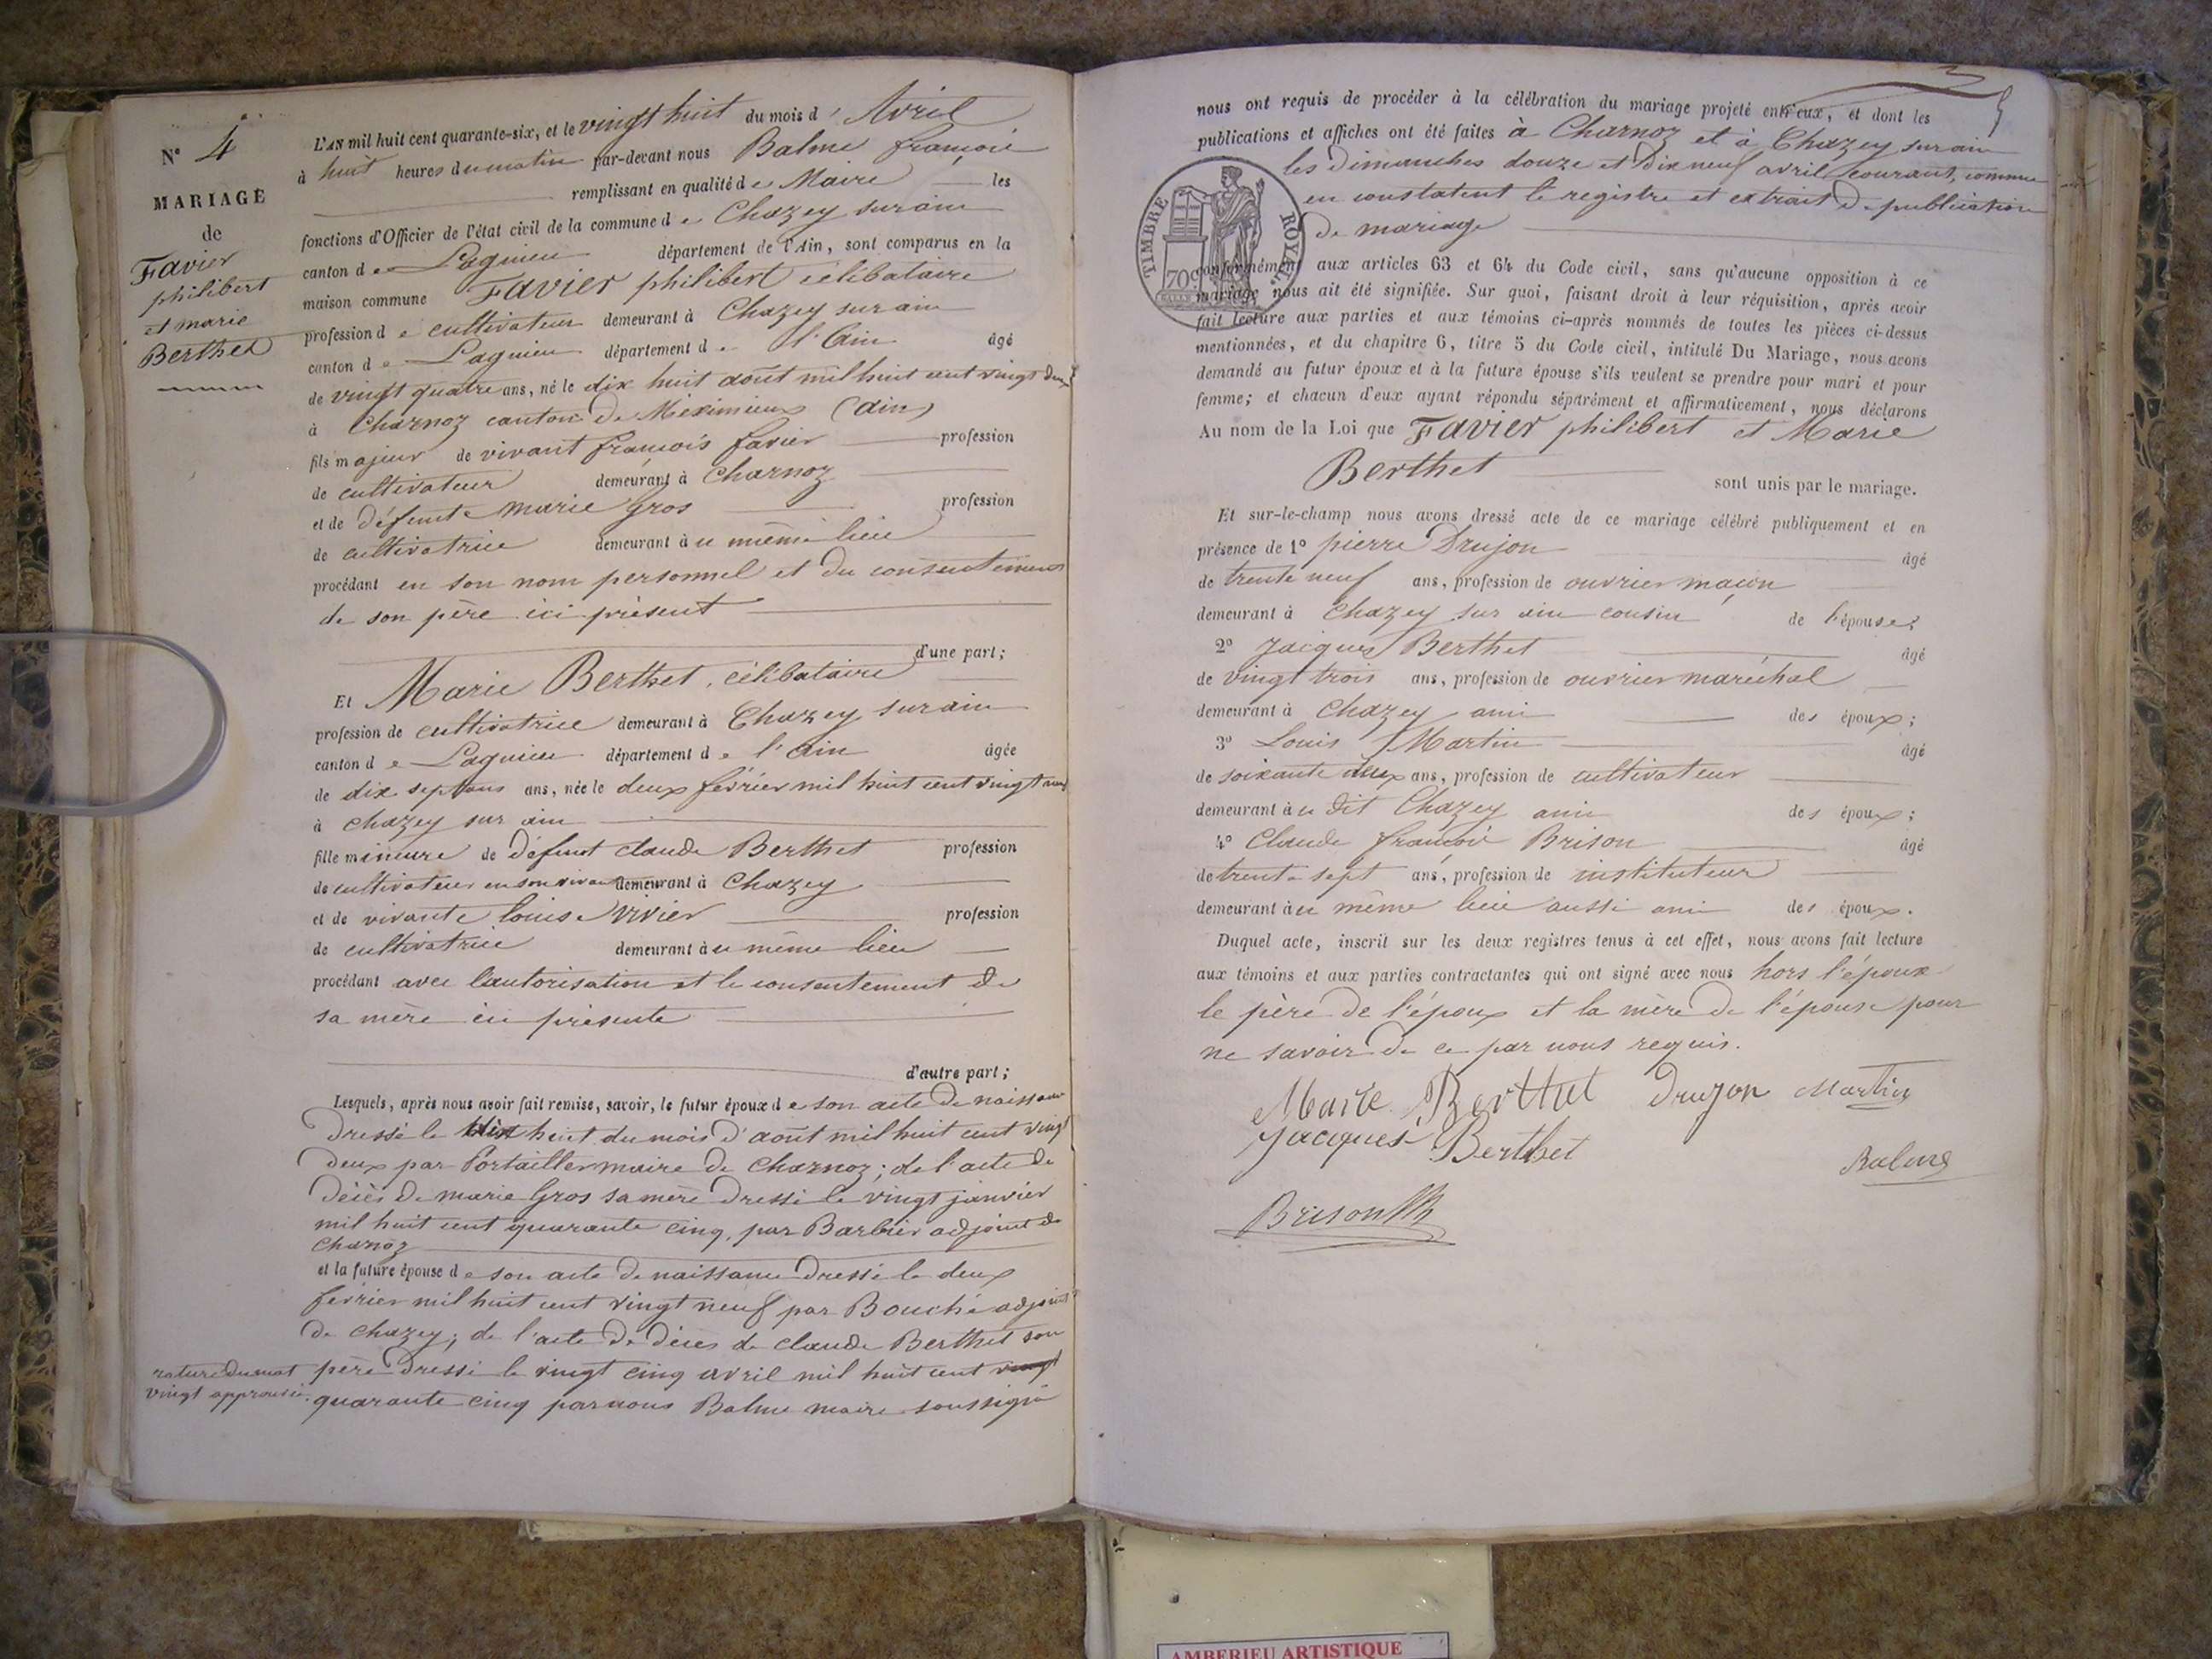 N° 4
MARIAGE
de
Favier
philibert
et marie
Berthet
L'AN mil huit cent quarante-six, et le vingt huit du mois d' Avril
à huit heures du matin par-devant nous Balme françois
remplissant en qualité de Maire les
fonctions d'Officier de l'état civil de la commune de Chazey sur ain
canton de Lagnieu département de l'Ain, sont comparus en la
maison commune Favier philibert célibataire
profession de cultivateur demeurant à Chazey sur ain
canton de Lagnieu département de l'Ain âgé
de vingt quatre ans, né le dix huit août mil huit cent vingt deux
à Charnoz canton de Meximieux (ain)
fils majeur de vivant françois favier profession
de cultivateur demeurant à Charnoz
et de défunte marie Gros profession
de cultivatrice demeurant au même lieu
procédant en son nom personnel et du consentement
de son père ici présent
d'une part;
Et Marie Berthet, célibataire
profession de cultivatrice demeurant à Chazey sur ain
canton de Lagnieu département de l'ain âgée
de dix sept ans ans, née le deux février mil huit cent vingt neuf
à chazey sur ain
fille mineure de défunt claude Berthet profession
de cultivateur en son vivant demeurant à Chazey
et de vivante louise Vivier profession
de cultivatrice demeurant au même lieu
procédant avec l'autorisation et le consentement de
sa mère ici présente
d'autre part;
Lesquels, après nous avoir fait remise, savoir, le futur époux de son acte de naissance
dressé le dix huit du mois d'août mil huit cent vingt
deux par Portaillermaire de Charnoz; de l'acte de
décès de marie Gros sa mère dressé le vingt janvier
mil huit cent quarante cinq, par Barbier adjoint de
Charnoz
et la future épouse de son acte de naissance dressé le deux
février mil huit cent vingt neuf par Bouché adjoint
de chazey; de l'acte de décès de claude Berthet son
père dressé le vingt cinq avril mil huit cent vingt
quarante cinq par nous Balme maire soussigné
rature du mot
vingt approuvée.
5
nous ont requis de procéder à la célébration du mariage projeté entr'eux, et dont les
publications et affiches ont été faites à Charnoz et à Chazey sur ain
les dimanches douze et dix neuf avril courant, comme
en constatent le registre et extrait de publication
de mariage
TIMBRE ROYAL
70c
conformément aux articles 63 et 64 du Code civil, sans qu'aucune opposition à ce
mariage nous ait été signifiée. Sur quoi, faisant droit à leur réquisition, après avoir
fait lecture aux parties et aux témoins ci-après nommés de toutes les pièces ci-dessus
mentionnées, et du chapitre 6, titre 5 du Code civil, intitulé Du Mariage, nous avons
demandé au futur époux et à la future épouse s'ils veulent se prendre pour mari et pour
femme; et chacun d'eux ayant répondu séparément et affirmativement, nous déclarons
Au nom de la Loi que Favier philibert et Marie
Berthet
sont unis par le mariage.
Et sur-le-champ nous avons dressé acte de ce mariage célébré publiquement et en
présence de 1° pierre Drujon âgé
de trente neuf ans, profession de ouvrier maçon
demeurant à Chazey sur ain cousin de l'épouse;
2° Jacques Berthet âgé
de vingt trois ans, profession de ouvrier maréchal
demeurant à Chazey ami des époux;
3° Louis Martin âgé
de soixante deux ans, profession de cultivateur
demeurant au dit Chazey ami des époux;
4° Claude françois Brison âgé
de trente sept ans, profession de instituteur
demeurant au même lieu aussi ami des époux.
Duquel acte, inscrit sur les deux registres tenus à cet effet, nous avons fait lecture
aux témoins et aux parties contractantes qui ont signé avec nous hors l'époux
le père de l'époux et la mère de l'épouse pour
ne savoir de ce par nous requis.
Marie Berthet Drujon Martin
Jacques Berthet
Balme
Brison
AMBERIEU ARTISTIQUE